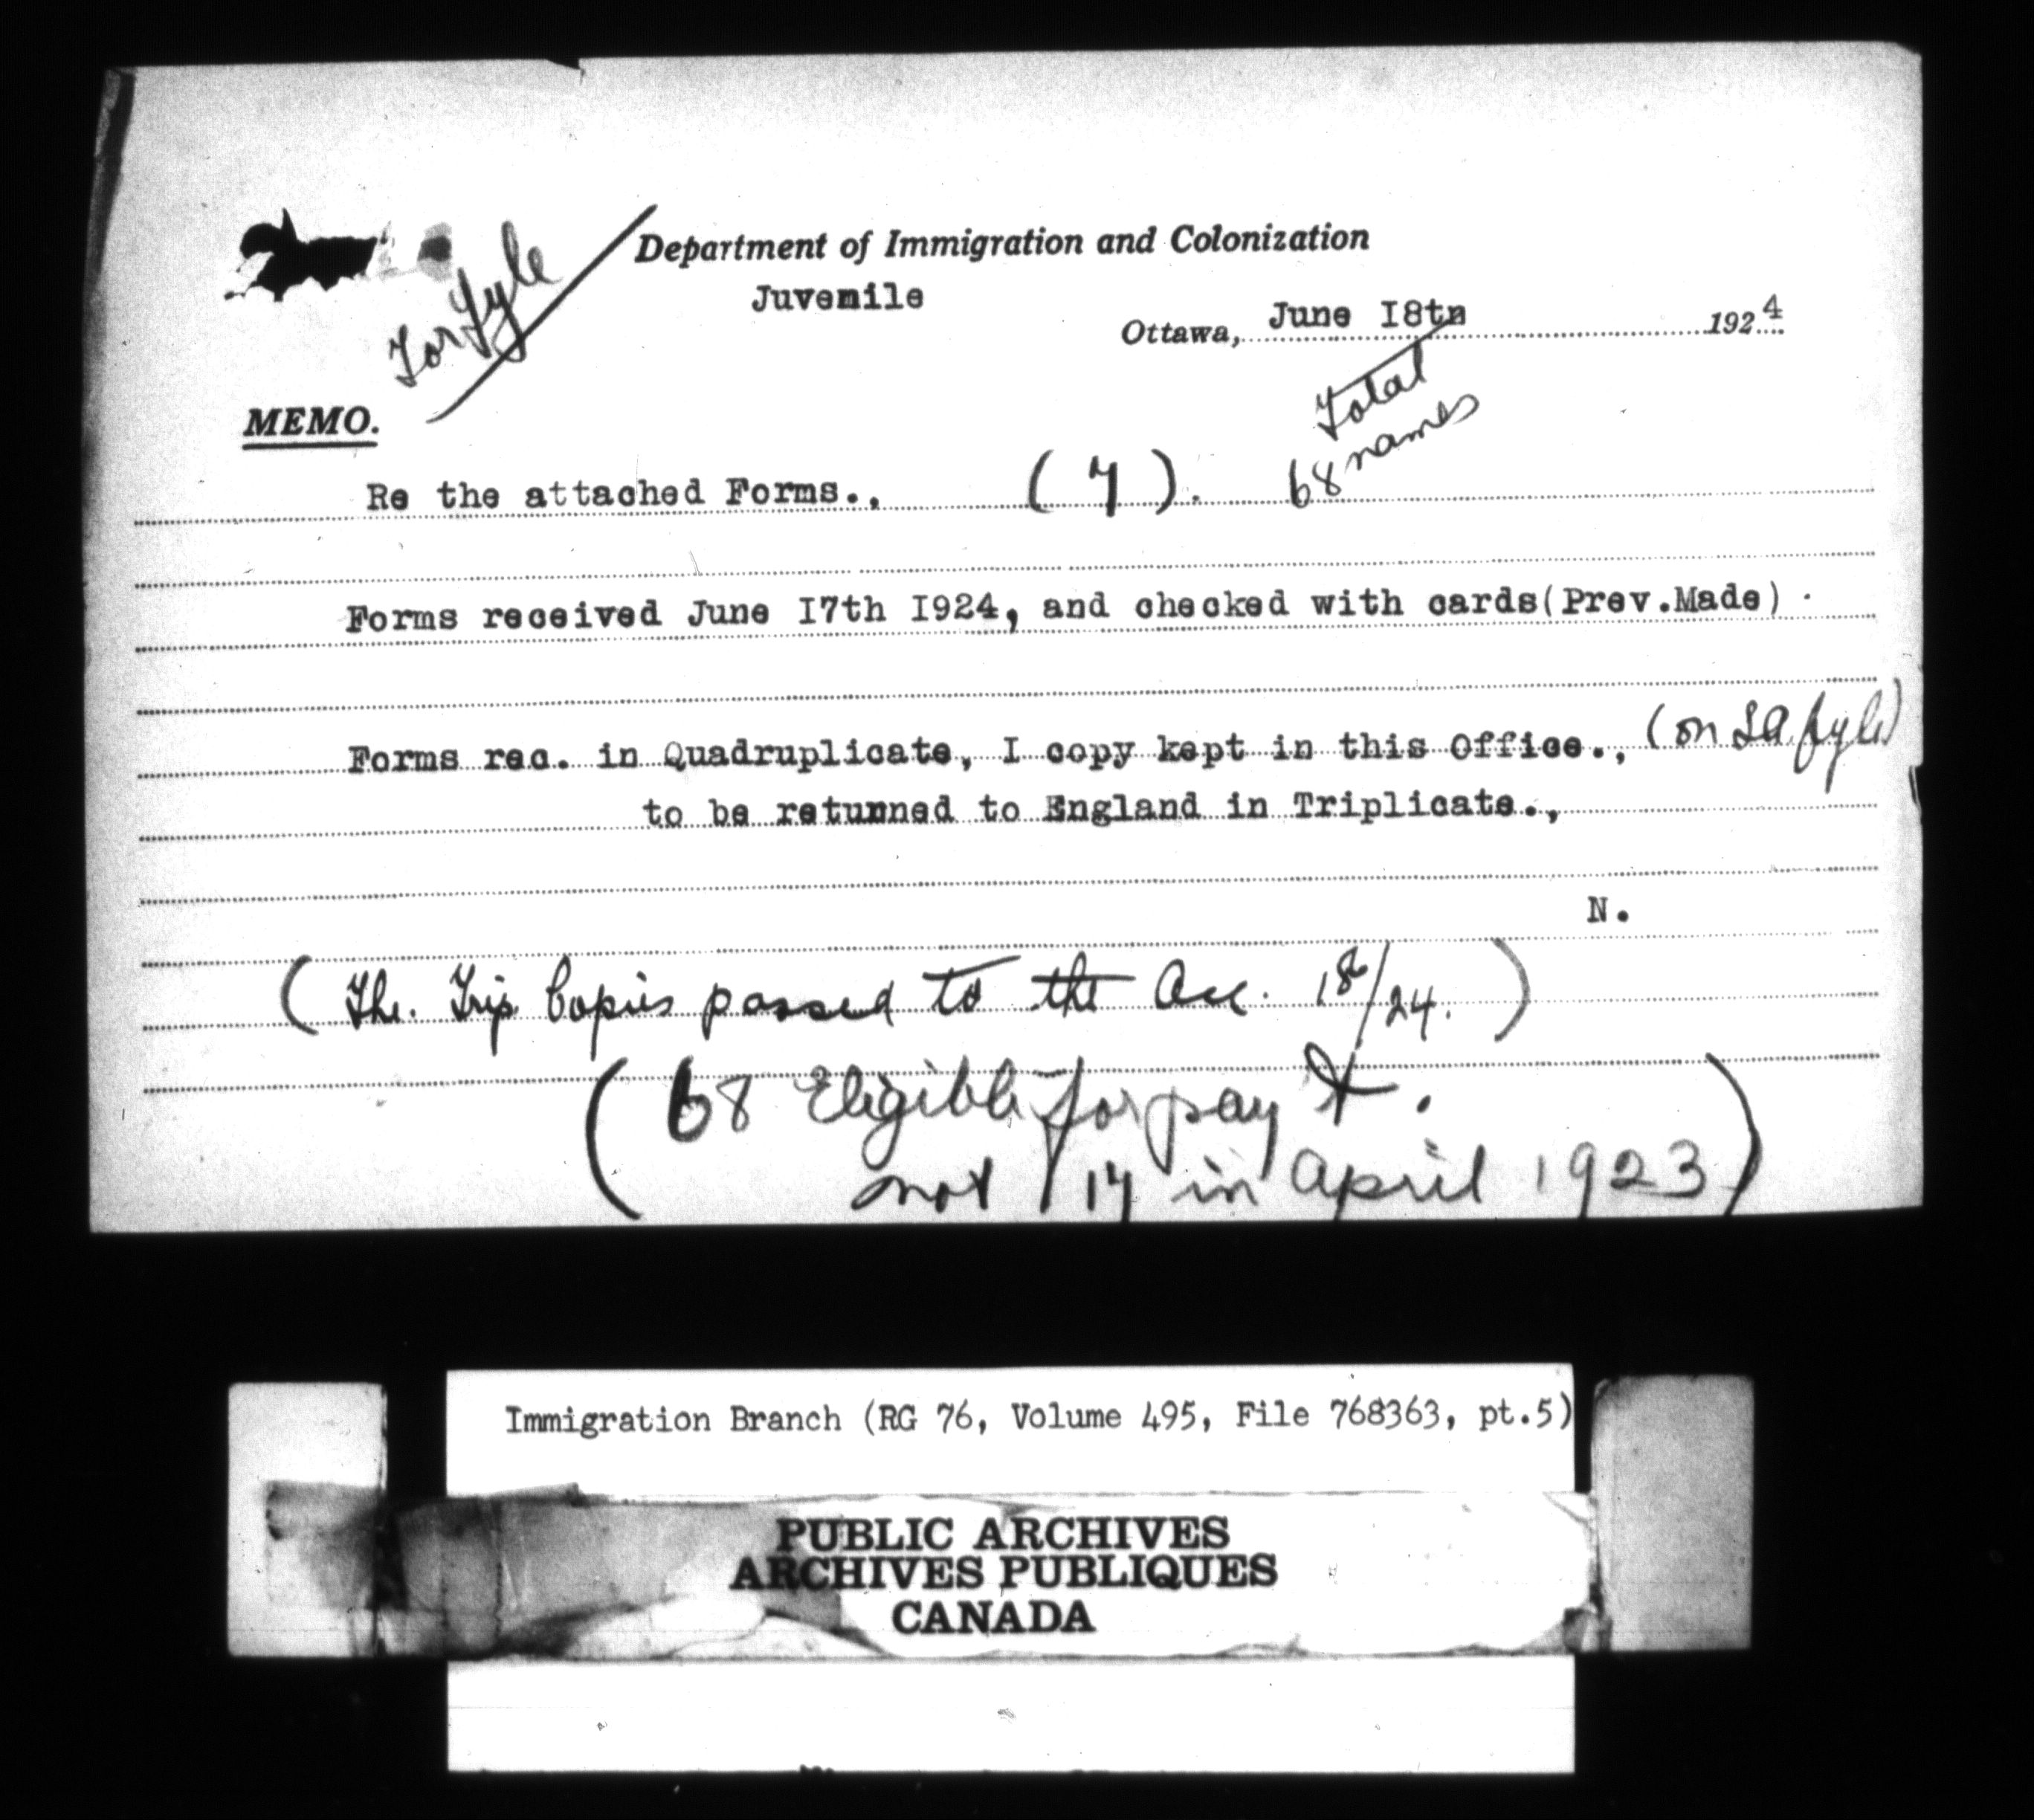 For Fyle
Department of Immigration and Colonization
Juvenile
Ottawa, June I8th 1924
Total
68 names
MEMO.
Re the attached Forms., (7).
Forms received June I7th I924, and checked with cards(Prev.Made).
Forms rec. in Quadruplicate, I copy kept in this Office., (on fyle)
to be retunned to England in Triplicate.,
N.
(The. Trip Copies passed to the Acc. 18/24.)
(68 Eligible for pay't.
not 14 in April 1923)
Immigration Branch (RG 76, Volume 495, File 768363, pt.5)
PUBLIC ARCHIVES
ARCHIVES PUBLIQUES
CANADA